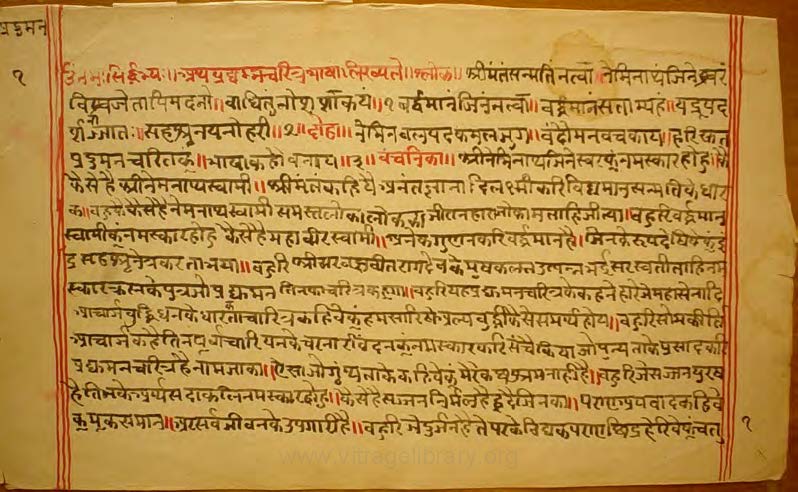 प्रद्युमन
१
ॐ नमः सिद्धेभ्यः ॥ अथ प्रद्युम्नचरित्र भाषा लिख्यते ॥ श्लोक ॥ श्रीमंतं सन्मतिं नत्वा नेमिनाथं जिनेश्वरं
विश्वजेतापि मदनो ॥ बाधितुं नो शशाक यं ॥ १ वर्द्धमानं जिनं नत्वा ॥ वर्द्धमानं सताम्यहं ॥ यद्रूपद
र्शनाज्जातः ॥ सहस्रनयनो हरी ॥ २ ॥ दोहा ॥ नेमिनवलपदकमलजुग ॥ वंदो मनवचकाय ॥ हरिसुत
प्रद्युमनचरितकूं ॥ भाषा कहो वनाय ॥ ३ ॥ वचनिका ॥ श्रीनेमिनाथ जिनेस्वरकूं नमस्कार होहु ॥ कै
कैसे है श्रीनेमनाथस्वामी ॥ श्रीमंतं कहियै अनंतज्ञानादि लक्ष्मी करि विद्यमान सन्मति के धार
क ॥ वहुरि कैसे है नेमनाथस्वामी समस्त लोकालोक का जीतनहारा ताहि जीत्या ॥ वहुरि वर्द्धमान
स्वामीकूं नमस्कार होहु कैसे है महावीरस्वामी ॥ अनेक गुणन करि वर्द्धमान है ॥ जिनके रूप देषिवेकूं इं
द्र सहस्र नेत्र करता भया ॥ वहुरि श्री वीतरागदेव के मुषकमलतै उत्पन्न भई सरस्वती ताहि नम
स्कार कृस्न के पुत्र जो प्रद्युमन तिनका चरित्र कहूगा ॥ वहुरि यह प्रद्युमनचरित्र के कहने हारे जे महासेनादि
आचार्ज वुद्धि धन के धारी ता चारित्र कहिवेकूं हम सारिषे अल्प वुद्धी कैसे समर्थ होय ॥ वहुरि सोमकीर्ति
आचार्ज कहै तिन पूर्वाचारियन के चरनारविंदनकूं नमस्कार करि संचै किया जो पुन्य ताके प्रसाद करि
प्रद्युमनचरित्र है नाम जाका ॥ ऐसा जो ग्रंथ ताके कहिवेकूं मेरे कछु श्रम नाही है ॥ वहुरि जे सज्जन पुरुष
है तिनके अर्थ सदाकाल नमस्कार होहु ॥ कैसे है सज्जन निर्मल है हृदै जिनका ॥ पराए अपवाद कहिवे
कूं मूक समान ॥ अर सर्व जीवन के उपगारी है ॥ वहुरि जे दुर्जन है ते परके निंदक पराए छिद्र हेरिवेकूं चतु
१
www.vitragelibrary.org